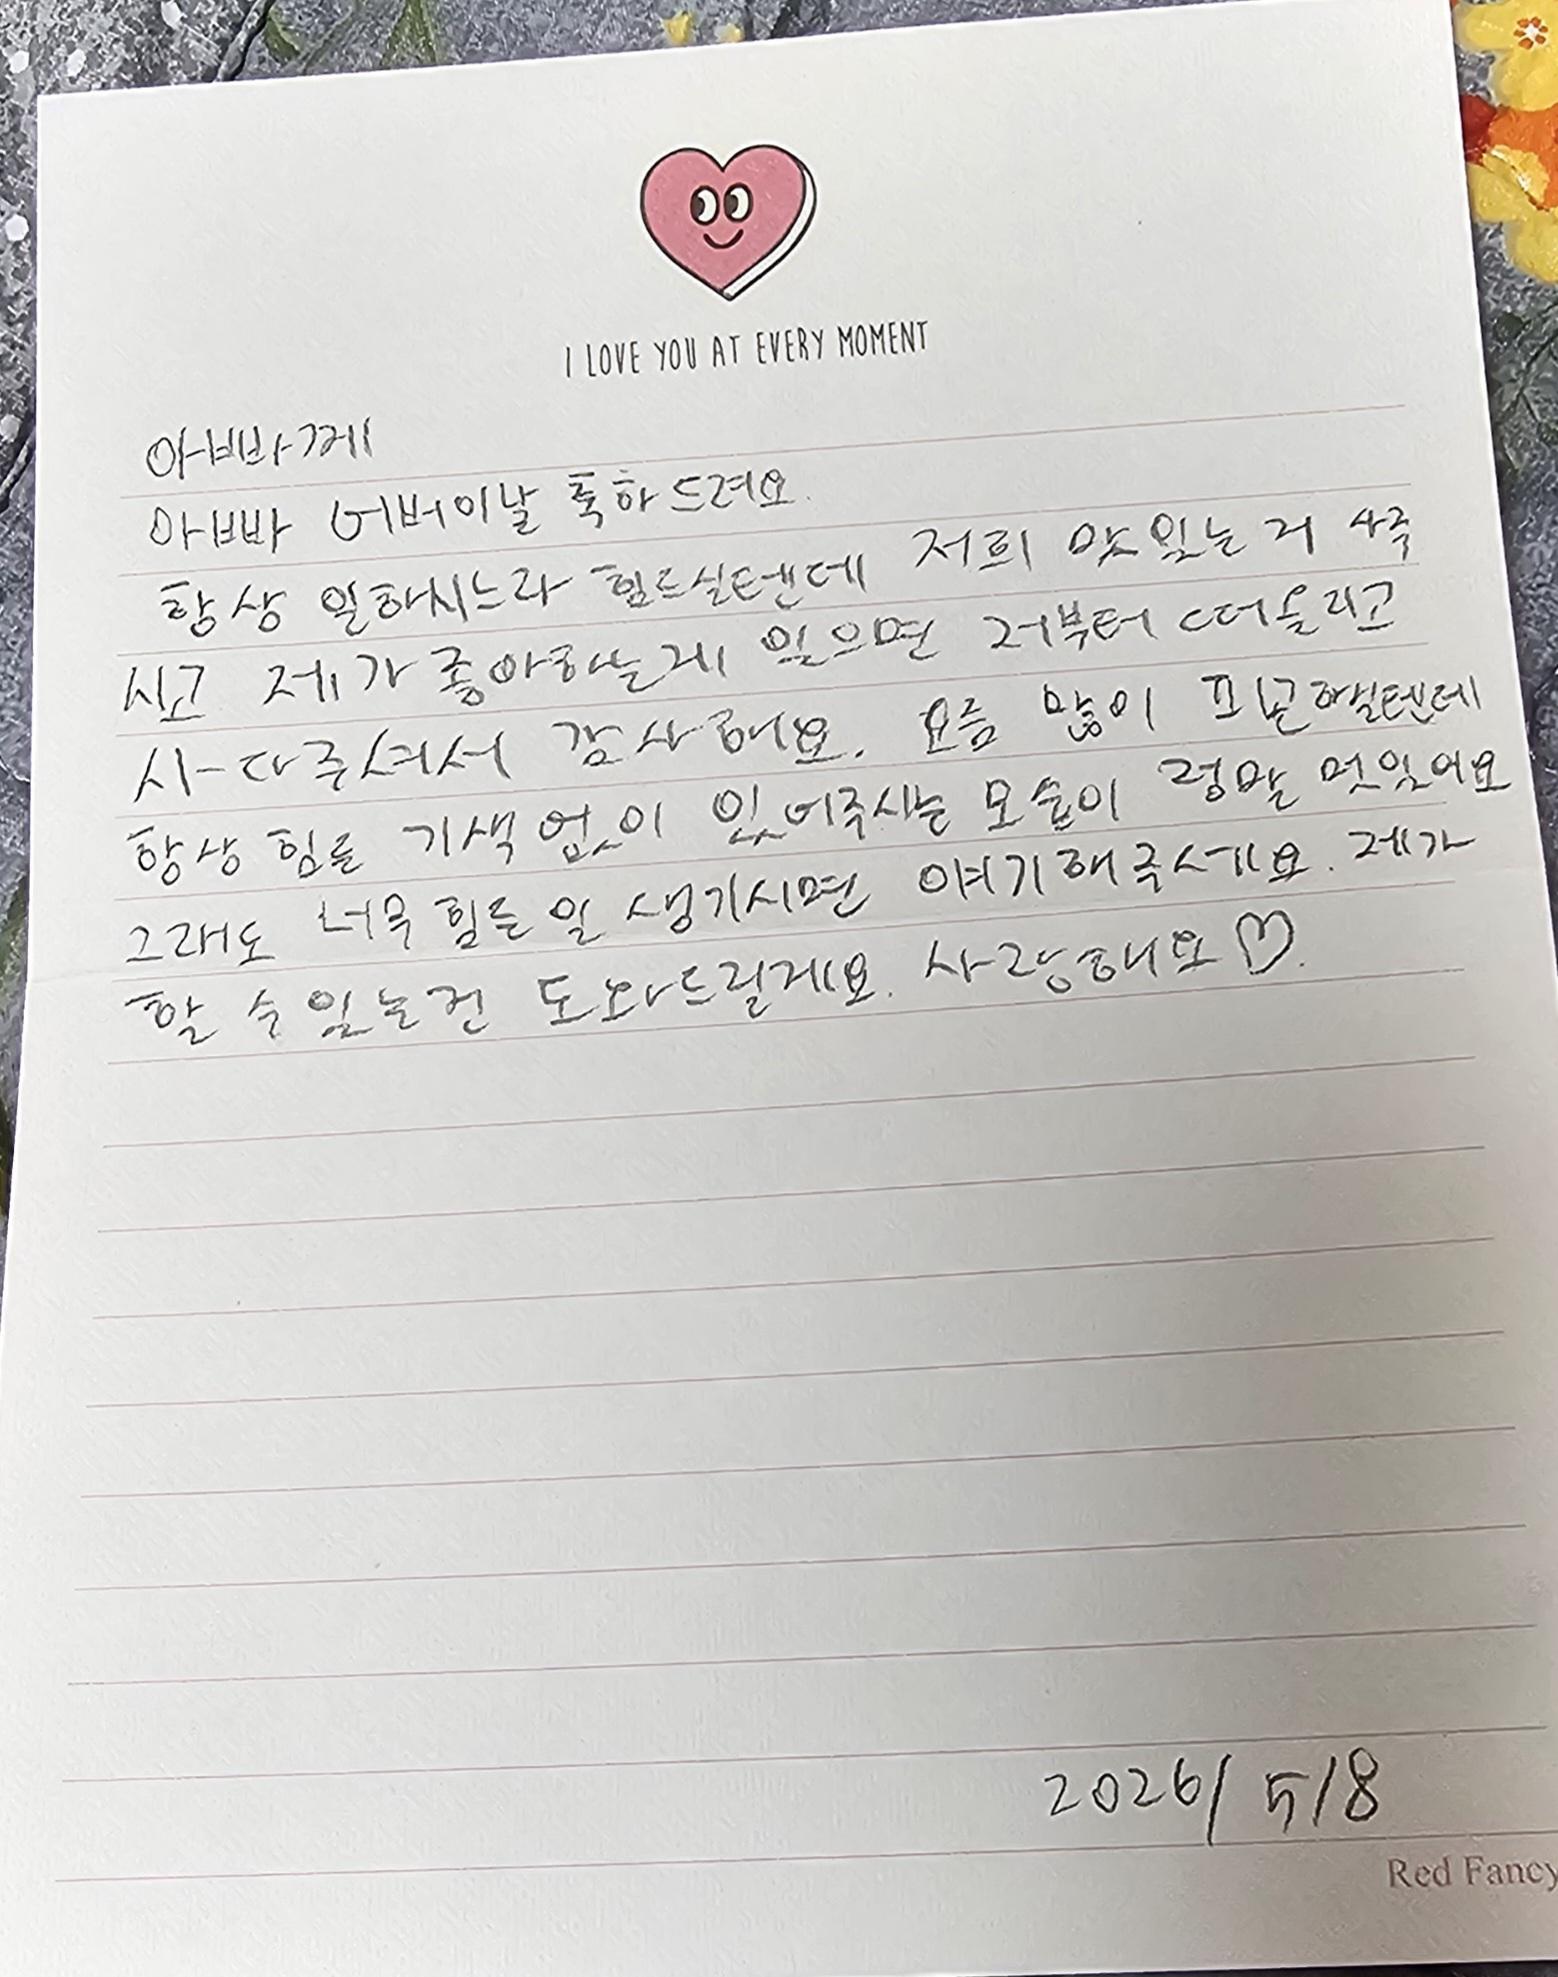 I LOVE YOU AT EVERY MOMENT
아빠께
아빠 어버이날 축하드려요.
항상 일하시느라 힘드실텐데 저희 맛있는거 사주
시고 제가 좋아하는게 있으면 저부터 떠올리고
사다주셔서 감사해요. 요즘 많이 피곤하실텐데
항상 힘든 기색 없이 있어주시는 모습이 정말 멋있어요
그래도 너무 힘든 일 생기시면 얘기해주세요. 제가
할 수 있는건 도와드릴게요. 사랑해요♡.
2026/5/8
Red Fancy